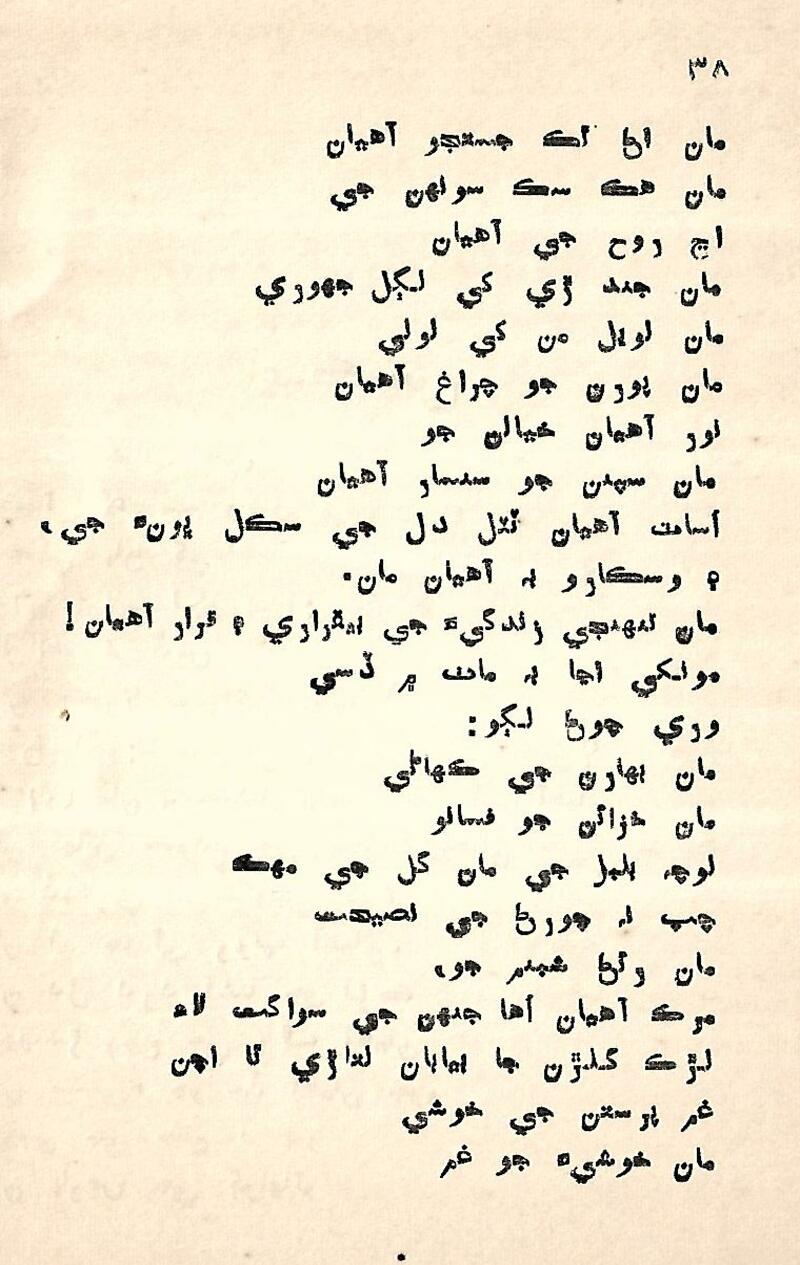 ٣٨
مان اڻ ٿڪ جستجو آهيان
مان هڪ سڪ سونهن جي
اڃ روح جي آهيان
مان جندڙي کي لڳل جهوري
مان لويل من کي لولي
مان پورن جو چراغ آهيان
نور آهيان خيالن جو
مان سپنن جو سنسار آهيان
آسانت آهيان ٽٽل دل جي سڪل ڀونءِ جي،
۽ وسڪارو به آهيان مان.
مان تنهنجي زندگيءَ جي بيقراري ۽ قرار آهيان!
مونکي اڃا به ماٺ ۾ ڏسي
وري چوڻ لڳو:
مان بهارن جي ڪهاڻي
مان خزائن جو فسانو
لوچ بلبل جي مان گل جي مهڪ
چپ نه چورڻ جي نصيحت
مان وڻڻ شبنم جو،
مرڪ آهيان آها جنهن جي سواگت لاءِ
لڙڪ گلڙن جا بيابان لتاڙي ٿا اچن
غم پرستن جي خوشي
مان خوشيءَ جو غم